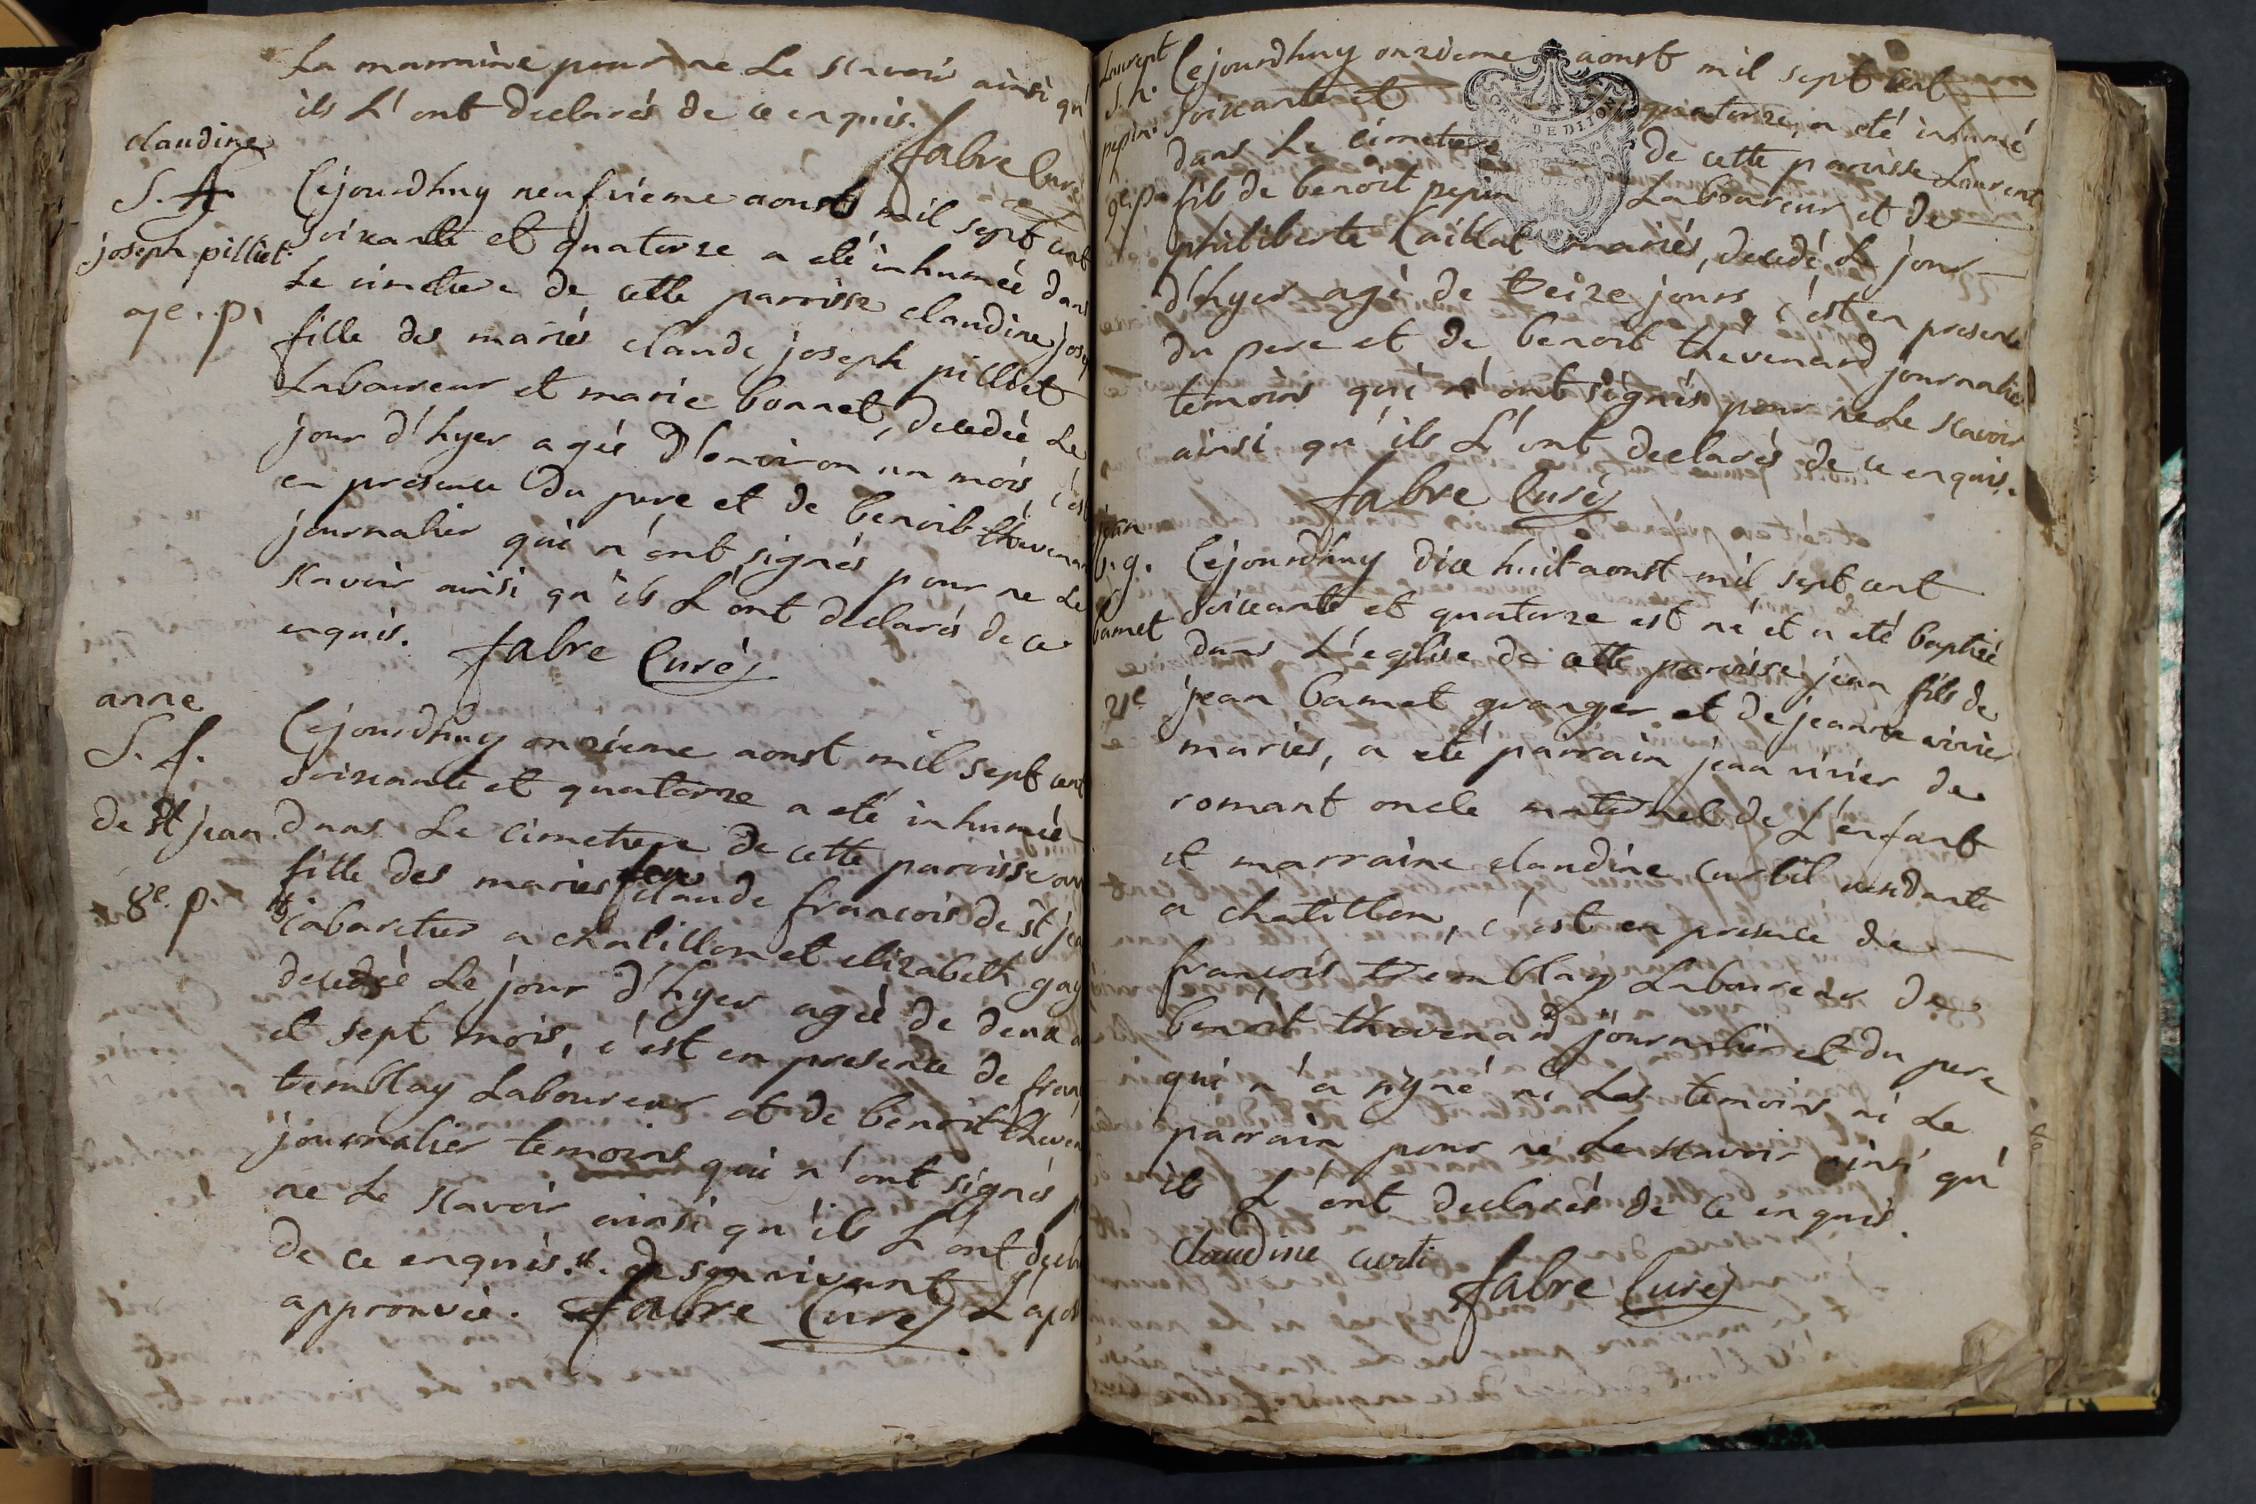 La marraine pour ne Le scavoir ainsi qu'
ils L'ont declarés de ce enquis.
fabre Curé
claudine
S. f.
joseph pilliet
7e. p.
Cejourdhuy neufvieme aoust mil sept cent
soixante et quatorze a eté inhumée dans
Le cimetiere de cette parroisse claudine jose
fille des mariés claude joseph pilliet
Laboureur et marie bonnet, decedée Le
jour d'hyer agée d'environ un mois, c'est
en presence du pere et de benoit thevenar
journalier qui n'ont signés pour ne Le
scavoir ainsi qu'ils L'ont declarés de ce
enquis. fabre Curé
anne
S. f.
de st jean
8e. p.
Cejourdhuy onzieme aoust mil sept cent
soixante et quatorze a eté inhumée
dans Le cimetiere de cette paroisse an
fille des mariés feu claude francois de st jea
cabaretier a chatillon et elizabeth gay
decedée Le jour d'hyer agée de deux a
et sept mois, c'est en presence de fran
tremblay Laboureur et de benoit theven
journalier temoins qui n'ont signés p
ne Le scavoir ainsi qu'ils L'ont decla
de ce enquis. de son vivant
approuvée. fabre Curé L'apos
Laurent
S. n.
pepin.
9e. p.
Cejourdhuy onzieme aoust mil sept cent
soixante et quatorze, a eté inhumé
dans Le cimetiere de cette parroisse Laurent
fils de benoit pepin Laboureur et de
philiberte Caillat mariés, decedé Le jour
d'hyer agé de treize jours, c'est en presence
du pere et de benoit thevenard journalier
temoins qui n'ont signés pour ne Le scavoir
ainsi qu'ils L'ont declarés de ce enquis.
fabre Curé
jean
b. g.
bamet
21e
Cejourdhuy dix huit aoust mil sept cent
soixante et quatorze est né et a eté baptisé
dans L'eglise de cette paroisse jean fils de
jean bamet granger et de jeanne vivier
mariés, a eté parrain jean vivier de
romant oncle maternel de L'enfant
et marraine claudine curtil residante
a chatillon, c'est en presence de
francois tremblay Laboureur de
benoit thevenard journalier et du pere
qui n'a signé ni Les temoins ni Le
parrain pour ne Le scavoir ainsi qu'
ils L'ont declarés de ce enquis.
Claudine curti
fabre Curé